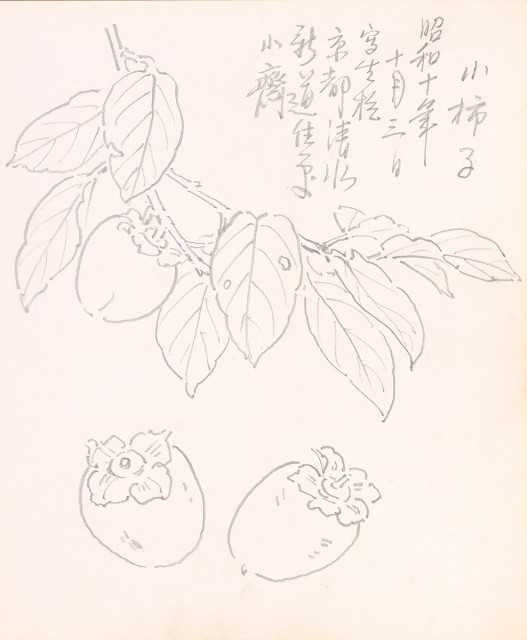 小柿子
昭和十年
十月三日
寫生於
京都清水
新道住
小齋